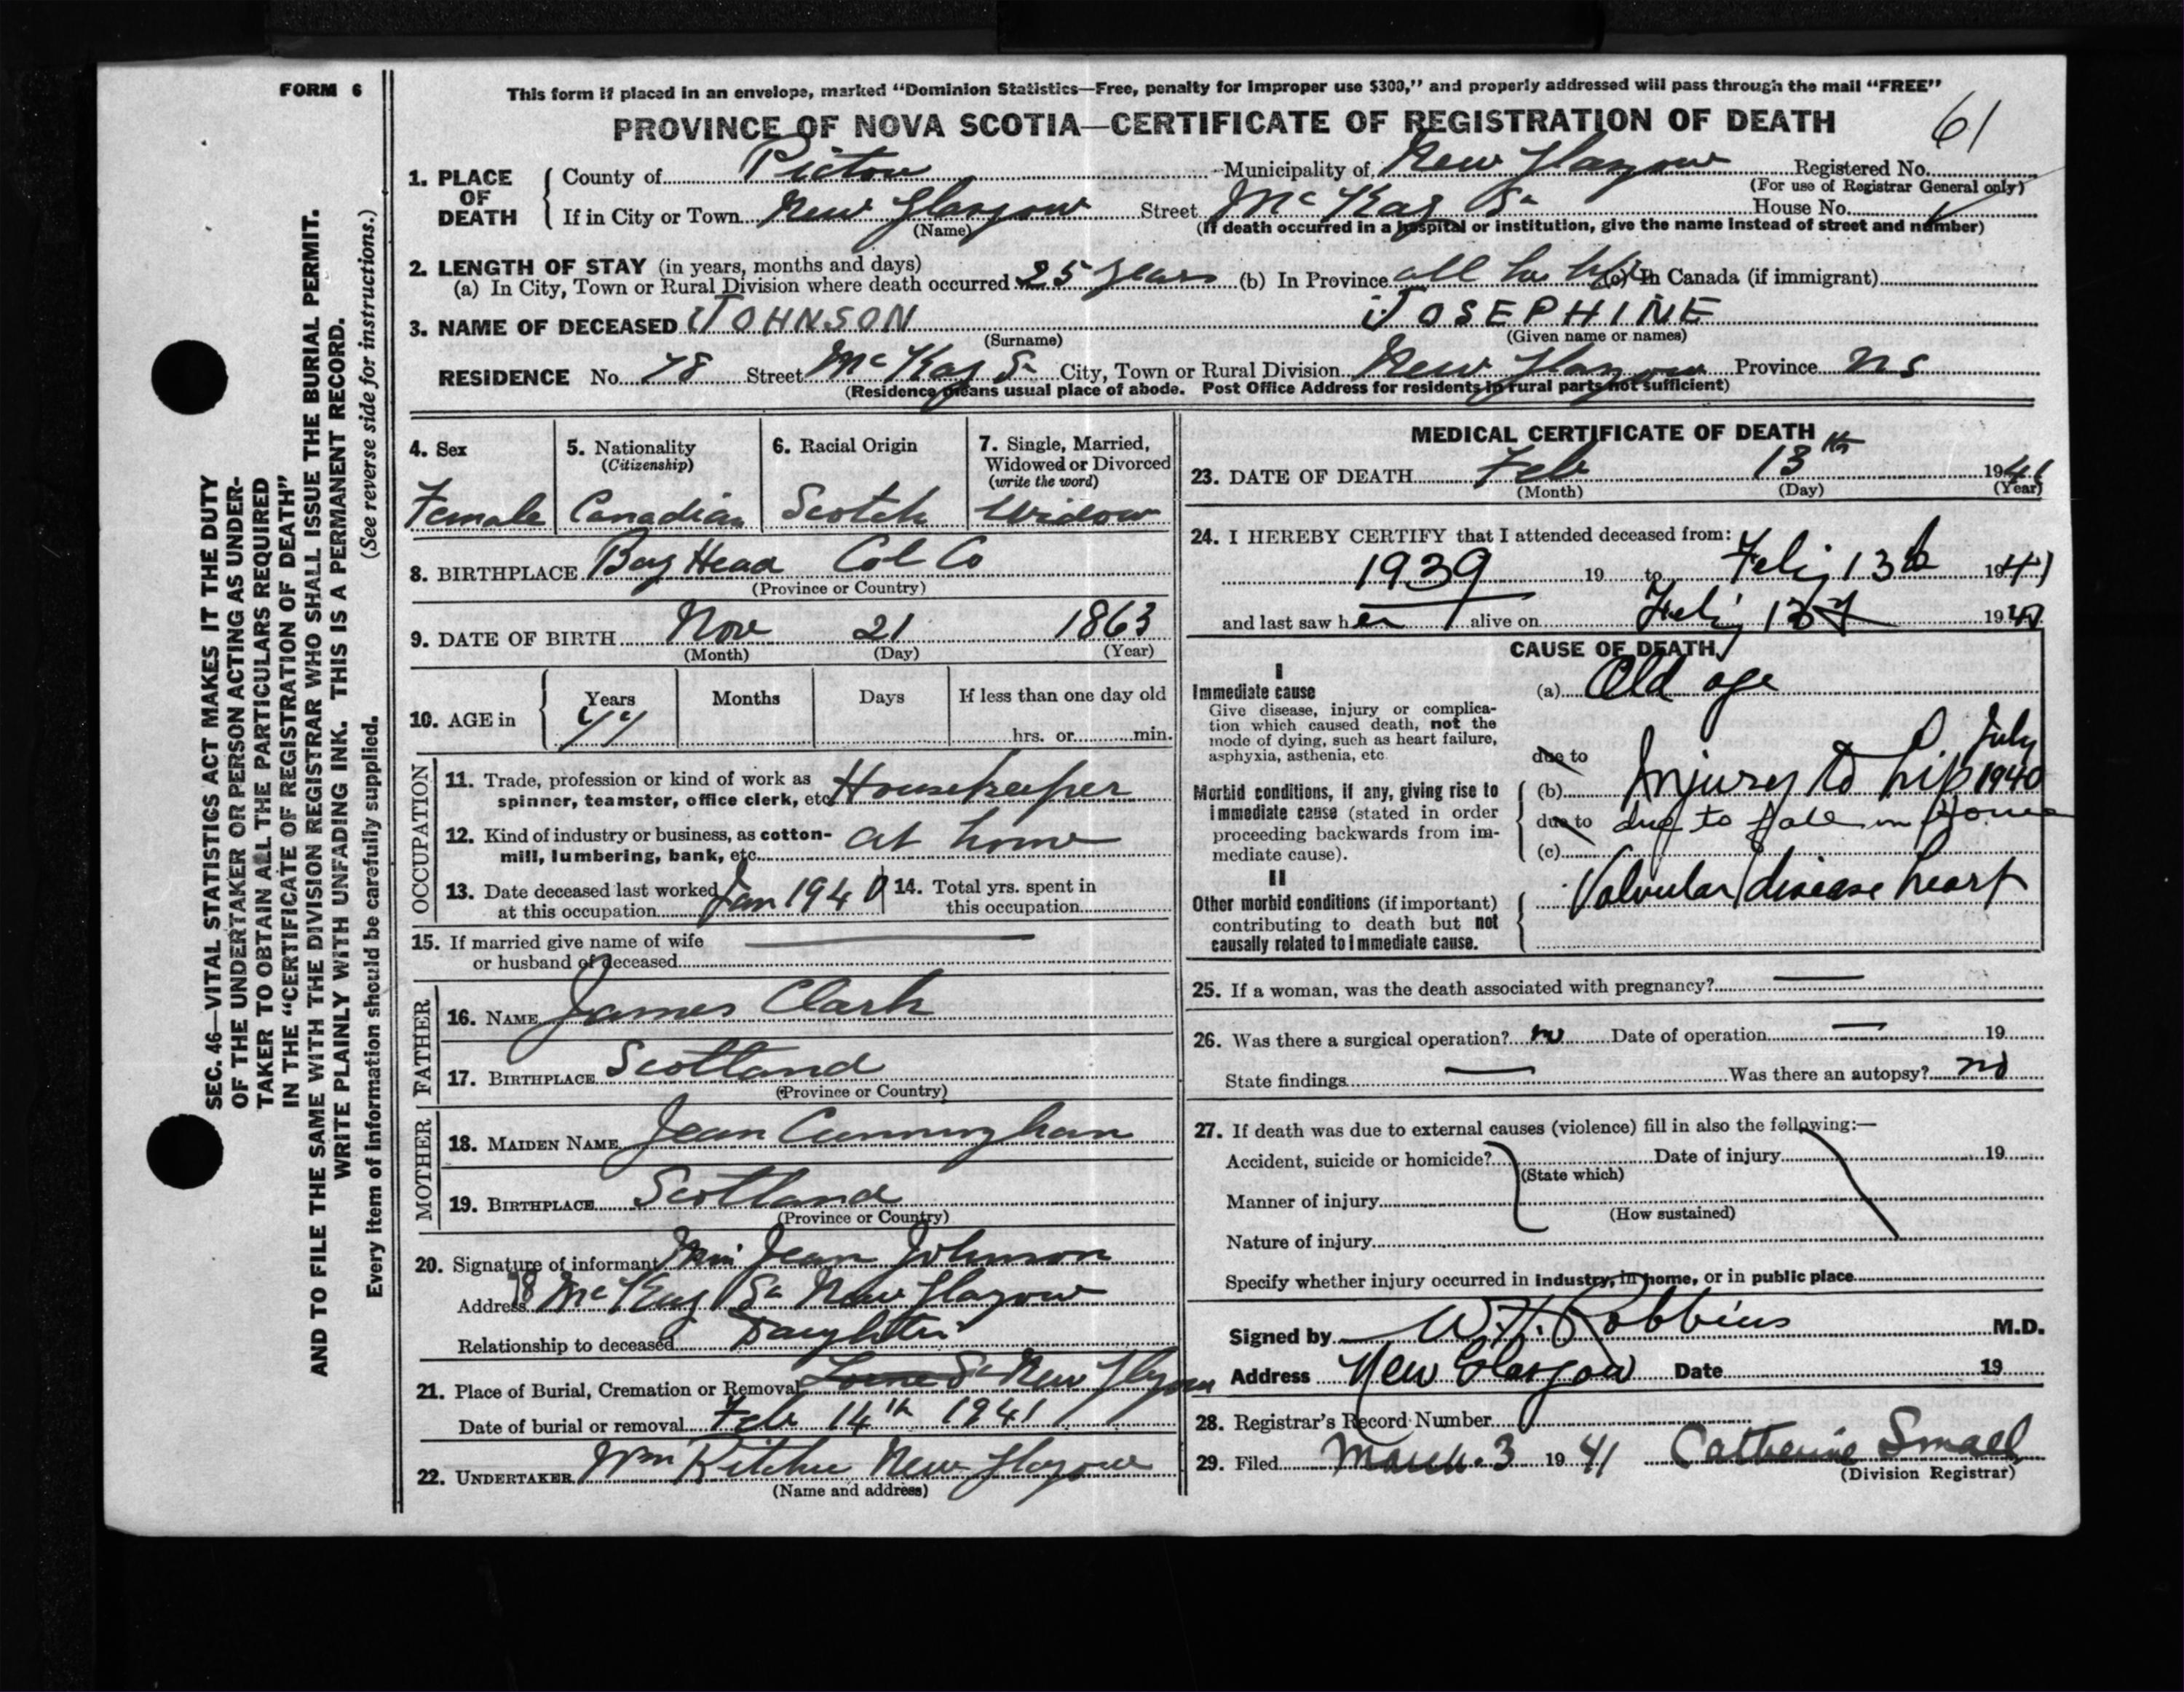 FORM 6
This form if placed in an envelope, marked "Dominion Statistics—Free, penalty for improper use $300," and properly addressed will pass through the mail "FREE"
PROVINCE OF NOVA SCOTIA—CERTIFICATE OF REGISTRATION OF DEATH
61
1. PLACE OF DEATH
County of Pictou Municipality of New Glasgow Registered No.
(For use of Registrar General only)
If in City or Town New Glasgow Street McKay St House No.
(Name) (If death occurred in a hospital or institution, give the name instead of street and number)
2. LENGTH OF STAY (in years, months and days)
(a) In City, Town or Rural Division where death occurred 25 years (b) In Province all her life (c) In Canada (if immigrant)
3. NAME OF DECEASED JOHNSON JOSEPHINE
(Surname) (Given name or names)
RESIDENCE No. 78 Street McKay St City, Town or Rural Division New Glasgow Province NS
(Residence means usual place of abode. Post Office Address for residents in rural parts not sufficient)
4. Sex Female
5. Nationality (Citizenship) Canadian
6. Racial Origin Scotch
7. Single, Married, Widowed or Divorced (write the word) Widow
8. BIRTHPLACE Bay Head Col Co
(Province or Country)
9. DATE OF BIRTH Nov 21 1863
(Month) (Day) (Year)
10. AGE in Years 77 Months Days If less than one day old
hrs. or min.
OCCUPATION
11. Trade, profession or kind of work as spinner, teamster, office clerk, etc. Housekeeper
12. Kind of industry or business, as cotton-mill, lumbering, bank, etc. at home
13. Date deceased last worked at this occupation Jan 1940
14. Total yrs. spent in this occupation
15. If married give name of wife or husband of deceased
FATHER
16. NAME James Clark
17. BIRTHPLACE Scotland
(Province or Country)
MOTHER
18. MAIDEN NAME Jean Cunningham
19. BIRTHPLACE Scotland
(Province or Country)
20. Signature of informant Jean Johnson
Address 78 McKay St New Glasgow
Relationship to deceased Daughter
21. Place of Burial, Cremation or Removal New Glasgow
Date of burial or removal Feb 14th 1941
22. UNDERTAKER Wm Ritchie New Glasgow
(Name and address)
MEDICAL CERTIFICATE OF DEATH
23. DATE OF DEATH Feb 13th 1941
(Month) (Day) (Year)
24. I HEREBY CERTIFY that I attended deceased from:
1939 19 to 13th 1941
and last saw her alive on 19
CAUSE OF DEATH
I
Immediate cause
Give disease, injury or complication which caused death, not the mode of dying, such as heart failure, asphyxia, asthenia, etc.
(a) Old age
due to
Morbid conditions, if any, giving rise to immediate cause (stated in order proceeding backwards from immediate cause).
(b) Injury to hip July 1940
due to due to fall in Home
(c)
II
Other morbid conditions (if important) contributing to death but not causally related to immediate cause.
Valvular disease heart
25. If a woman, was the death associated with pregnancy?
26. Was there a surgical operation? no Date of operation 19
State findings Was there an autopsy? no
27. If death was due to external causes (violence) fill in also the following:—
Accident, suicide or homicide? Date of injury 19
(State which)
Manner of injury
(How sustained)
Nature of injury
Specify whether injury occurred in industry, in home, or in public place
Signed by W.H. Robbins M.D.
Address New Glasgow Date 19
28. Registrar's Record Number
29. Filed March 3 1941 Catherine Small
(Division Registrar)
SEC. 46—VITAL STATISTICS ACT MAKES IT THE DUTY
OF THE UNDERTAKER OR PERSON ACTING AS UNDER-
TAKER TO OBTAIN ALL THE PARTICULARS REQUIRED
IN THE "CERTIFICATE OF REGISTRATION OF DEATH"
AND TO FILE THE SAME WITH THE DIVISION REGISTRAR WHO SHALL ISSUE THE BURIAL PERMIT.
WRITE PLAINLY WITH UNFADING INK. THIS IS A PERMANENT RECORD.
Every item of information should be carefully supplied. (See reverse side for instructions.)